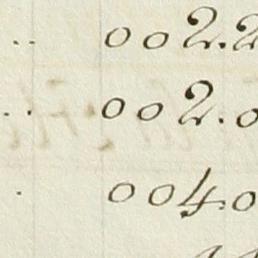 .. 002.2
.. 002.0
. 004.0